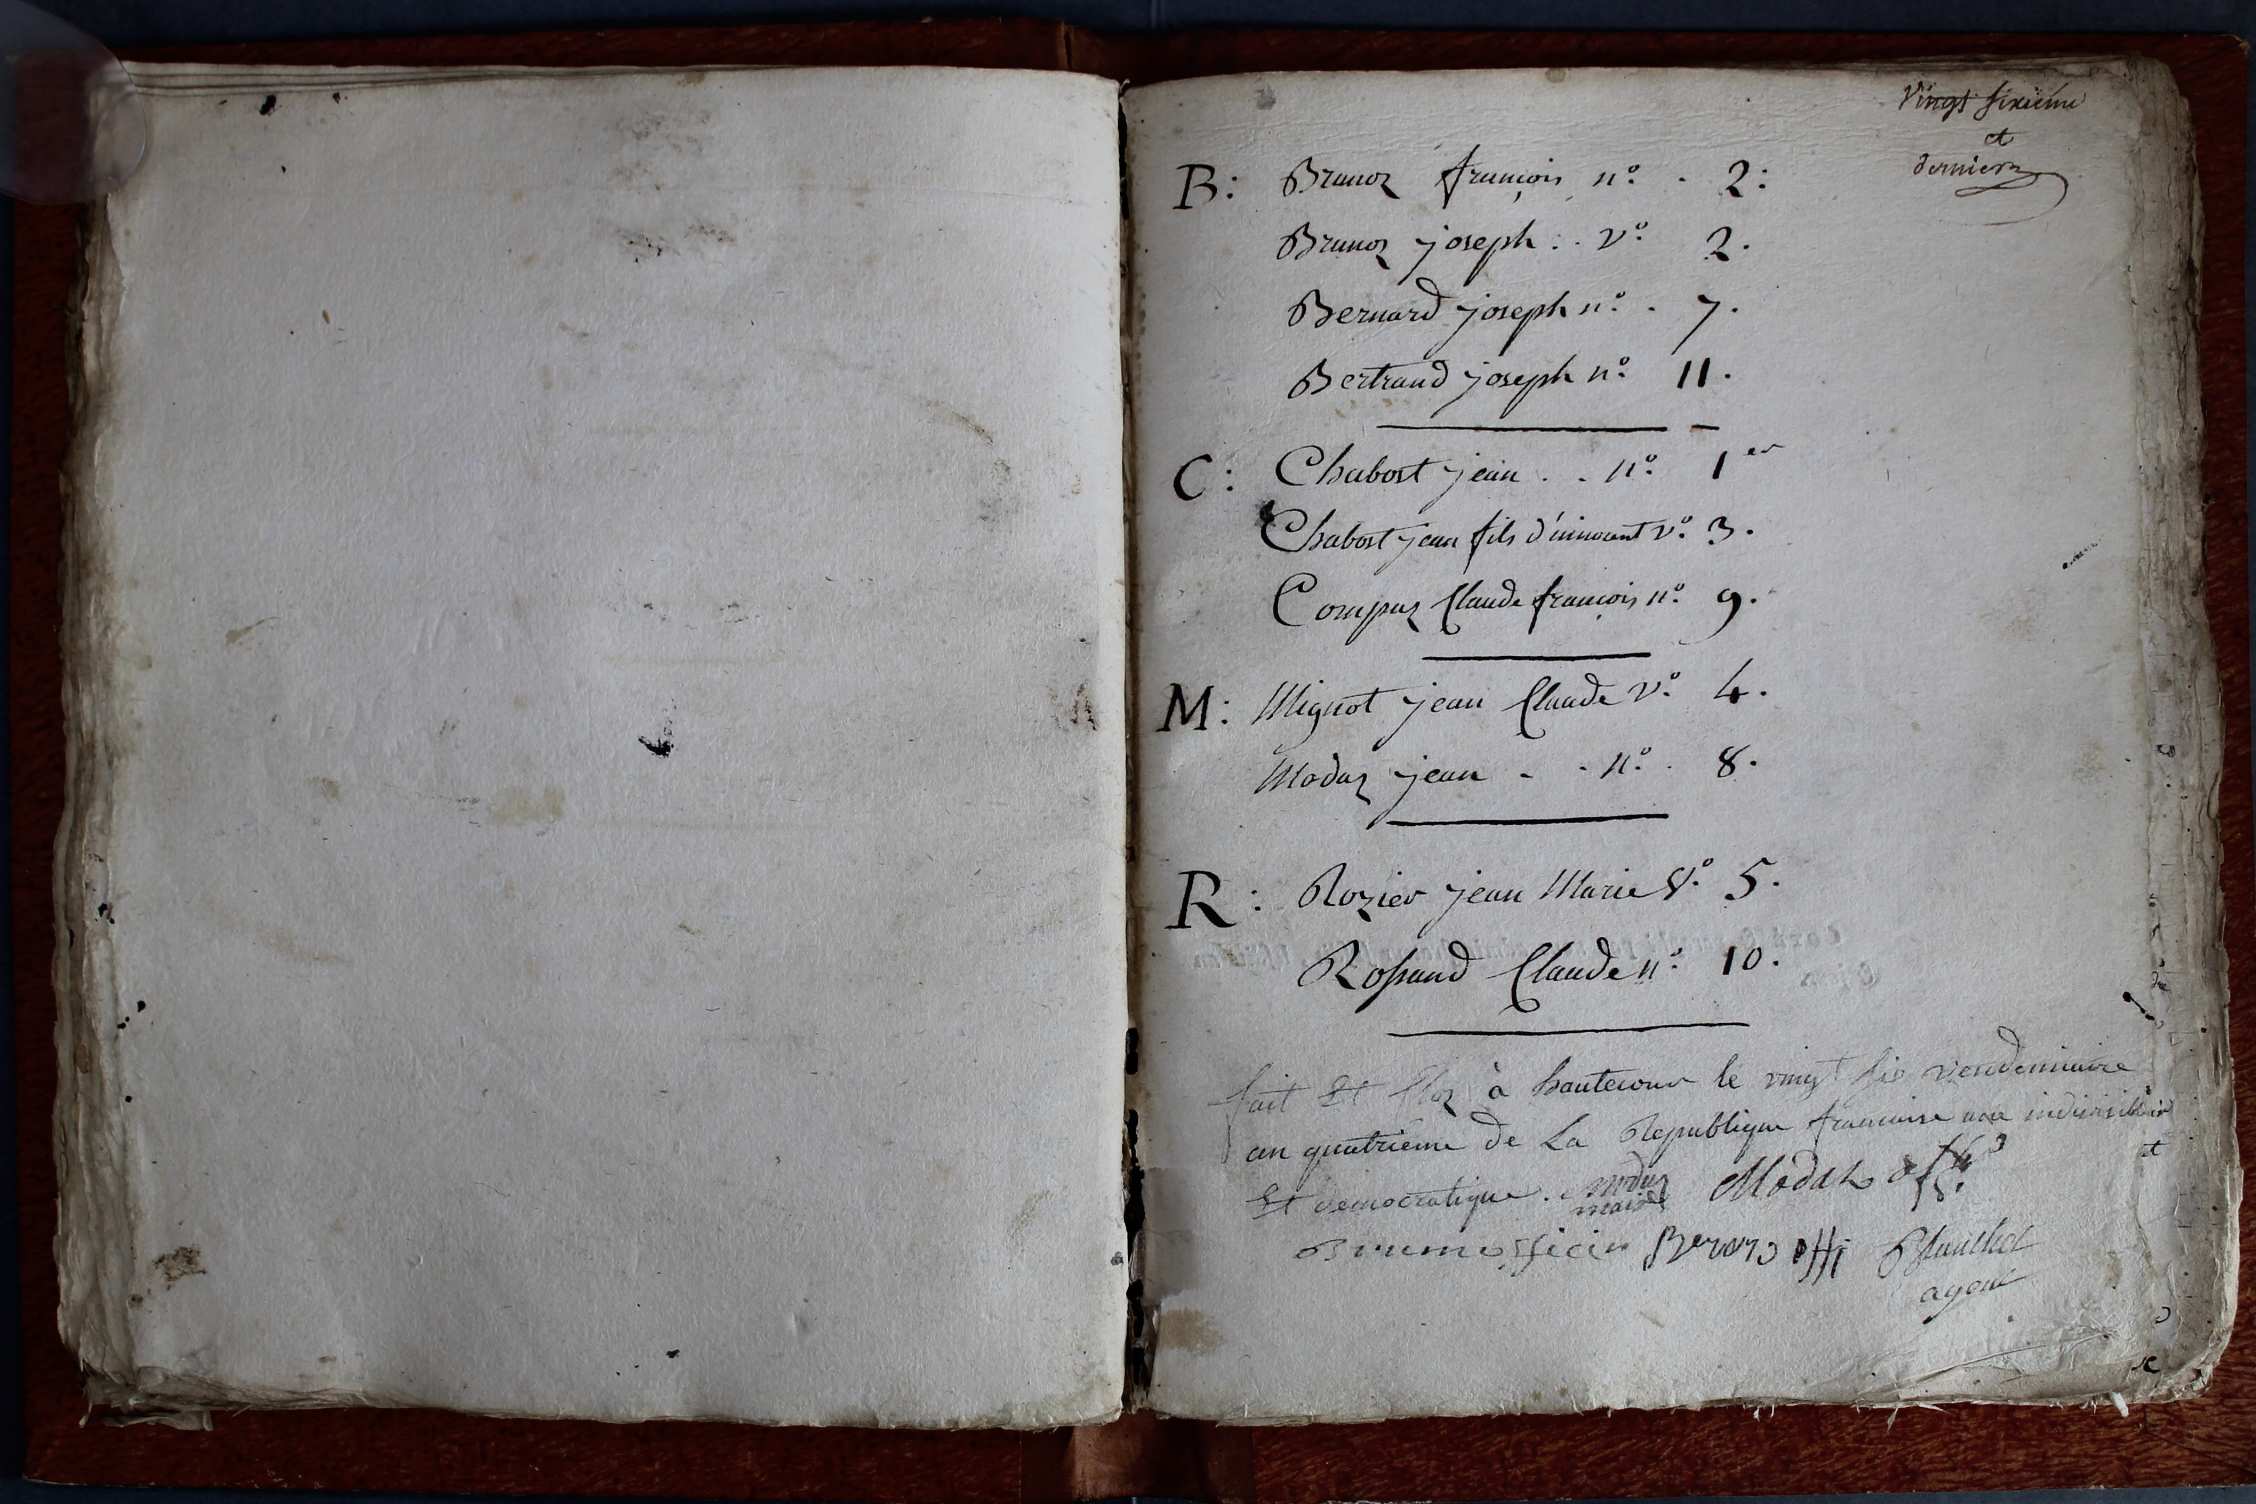 Vingt sixième
et
dernier
B: Brunoz françois n° . 2:
Brunoz joseph : . v° 2.
Bernard joseph n° . 7.
Bertrand joseph n° 11.
C: Chabost jean . . n° 1er
Chabost jean fils d'innocent v° 3.
Compaz Claude françois n° 9.
M: Mignot jean Claude v° 4.
Modaz jean . . n° . 8.
R: Rozier jean Marie v° 5.
Rossand Claude n° 10.
fait Et Cloz à hautecour le vingt six vendemiaire
an quatrieme de La Republique francaise une indivisible
Et democratique. modaz Modaz
maire
Bernard offi Blanchet
agent